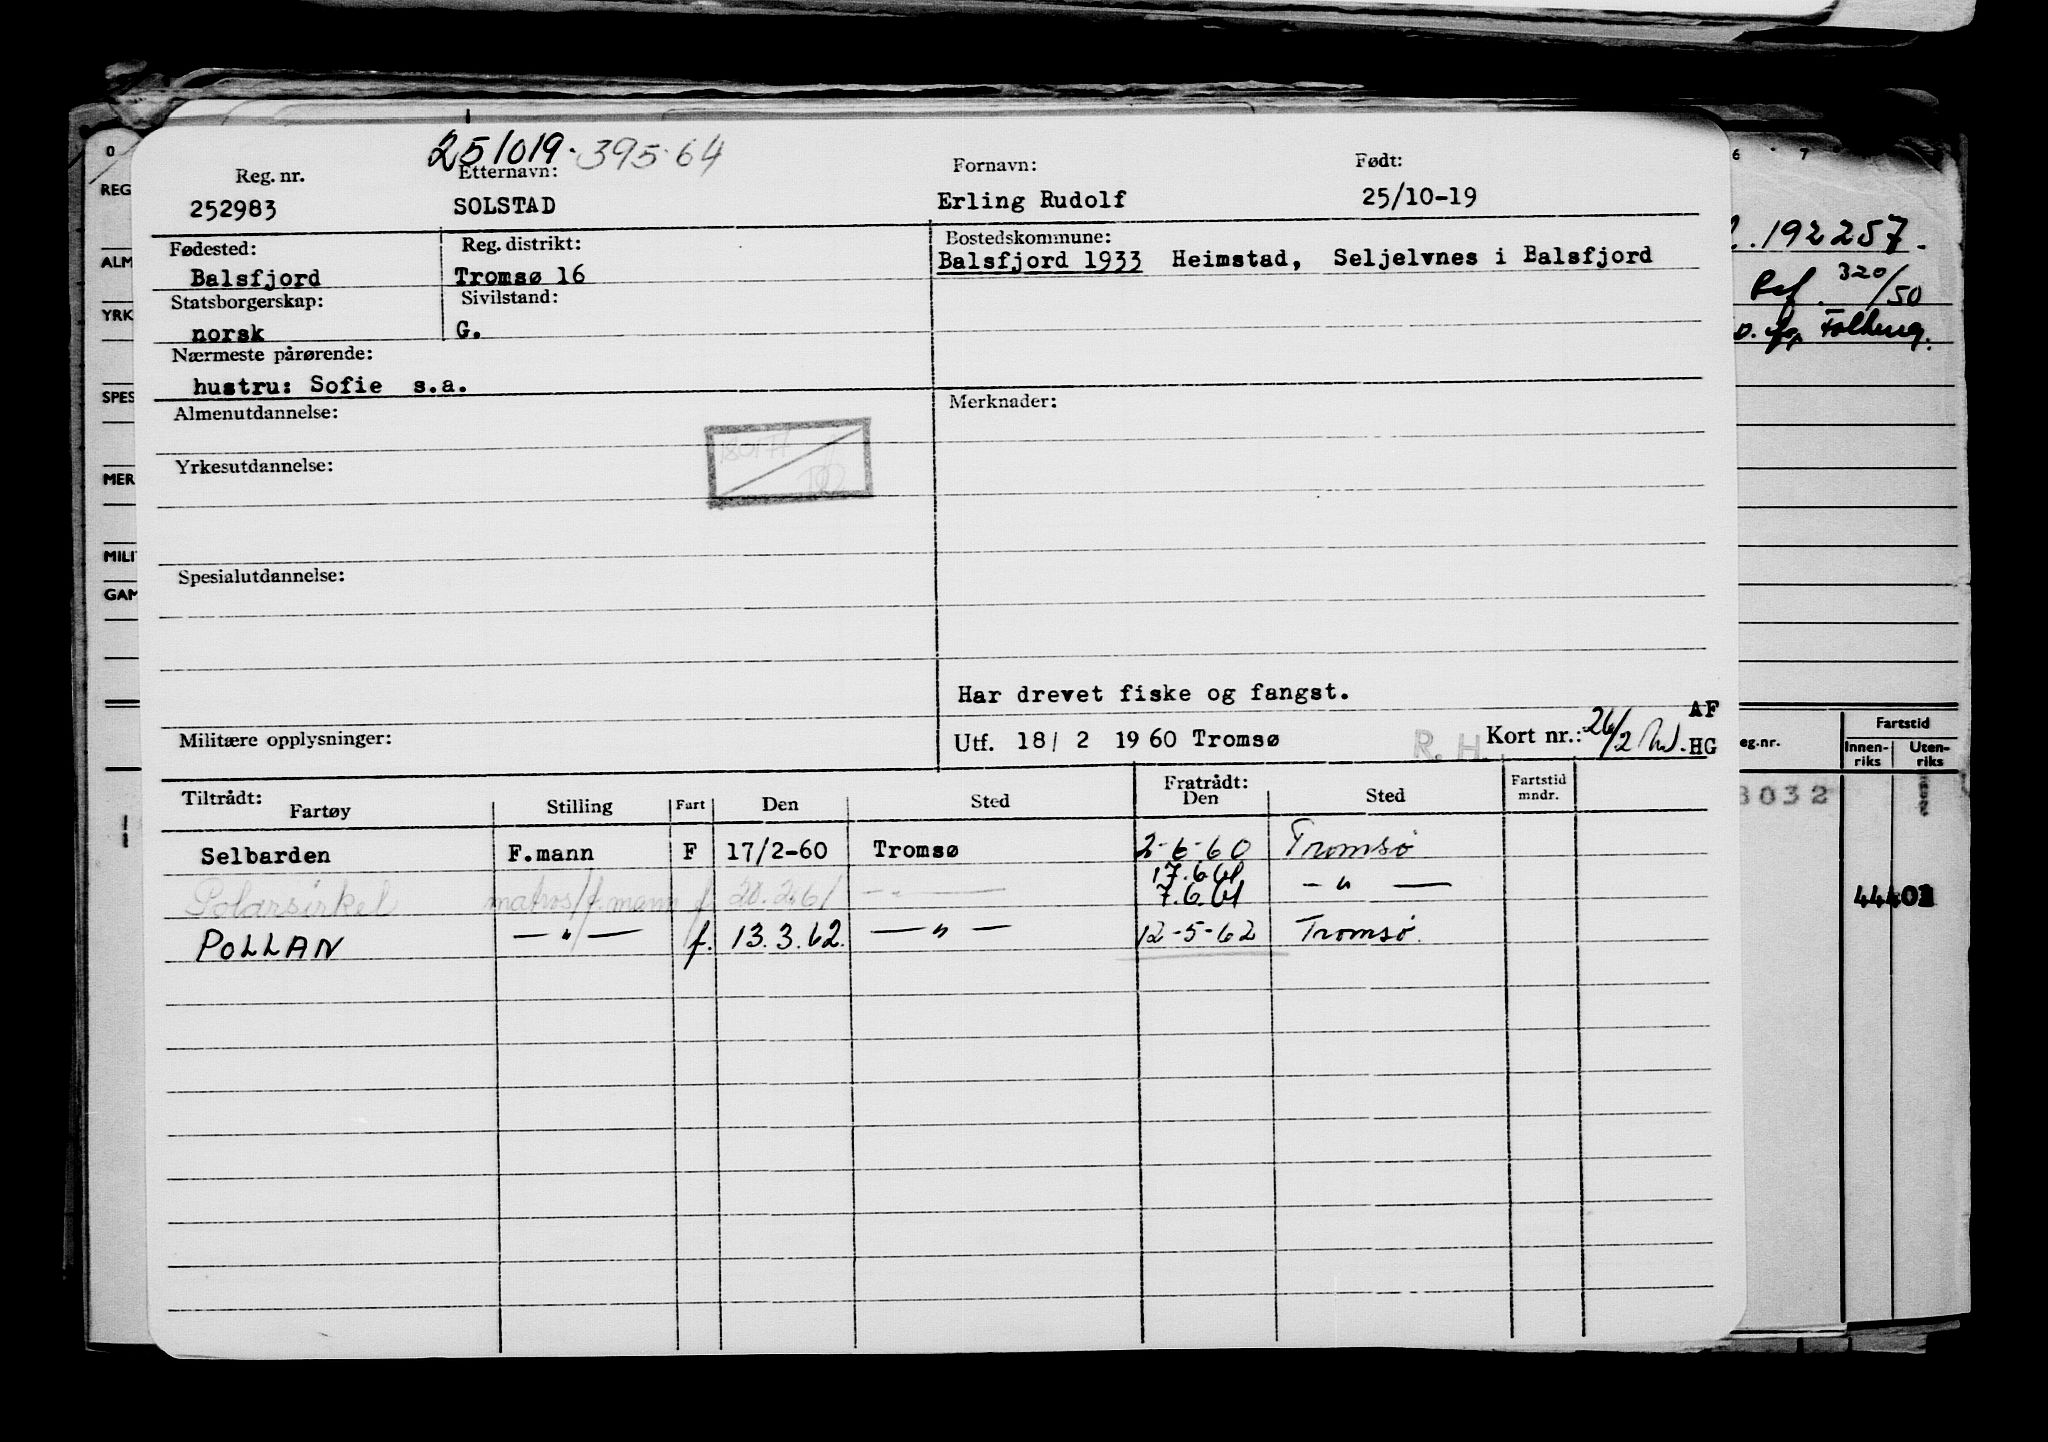 251019·39564
Reg. nr. Etternavn: Fornavn: Født:
252983 SOLSTAD Erling Rudolf 25/10-19
Fødested: Reg. distrikt: Bostedskommune:
Balsfjord Tromsø 16 Balsfjord 1933 Heimstad, Seljelvnes i Balsfjord
Statsborgerskap: Sivilstand:
norsk G.
Nærmeste pårørende:
hustru: Sofie s.a.
Almenutdannelse: Merknader:
Yrkesutdannelse:
Spesialutdannelse:
Har drevet fiske og fangst.
AF
Militære opplysninger: Utf. 18/ 2 1960 Tromsø R. H. Kort nr.: 26/2 HG
Tiltrådt: Fratrådt: Fartstid
Fartøy Stilling Fart Den Sted Den Sted mndr.
Selbarden F.mann F 17/2-60 Tromsø 2-6-60 Tromsø
17.6.61
Polarsirkel matros/f.mann f 20.2.61 —"— 7.6.61 —"—
POLLAN —"— f. 13.3.62. —"— 12-5-62 Tromsø.
0
REG
ALM
YRK
SPES
MER
MILIT
GAM
6 7
192257.
Ref. 320/50
Fartstid
eg.nr. Innen-riks Uten-riks
3032